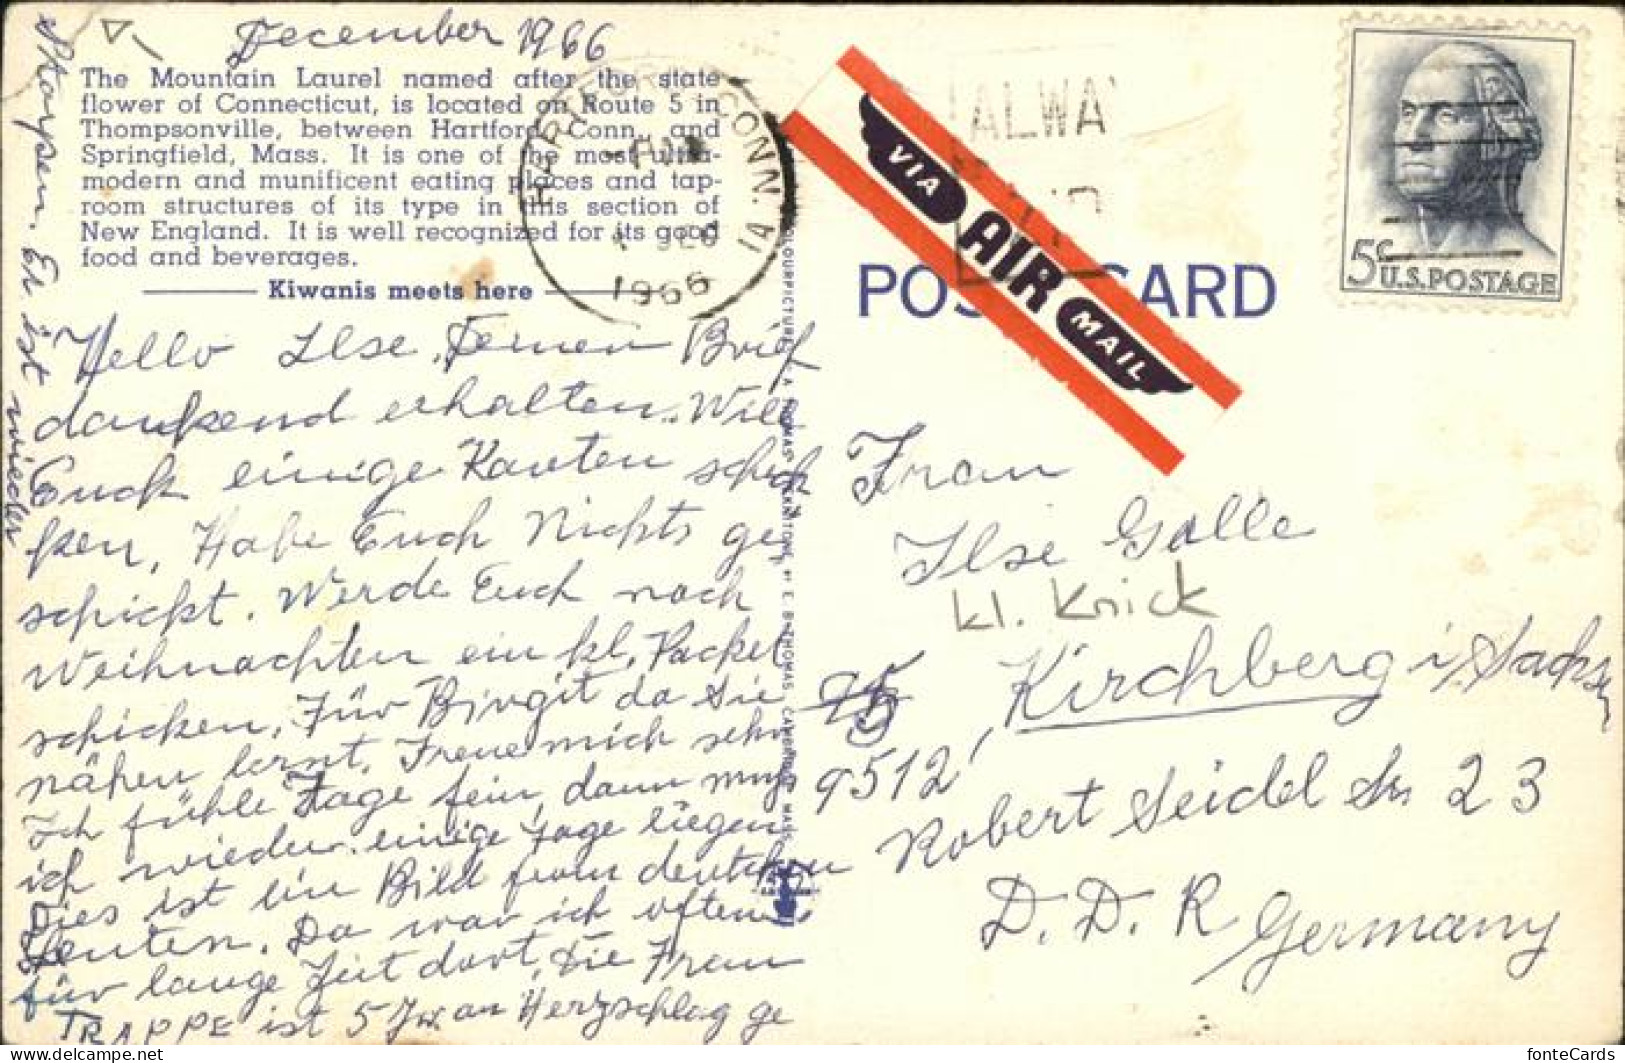 December 1966
The Mountain Laurel named after the state
flower of Connecticut, is located on Route 5 in
Thompsonville, between Hartford, Conn., and
Springfield, Mass. It is one of the most ultra-
modern and munificent eating places and tap-
room structures of its type in this section of
New England. It is well recognized for its good
food and beverages.
Kiwanis meets here
Hello Ilse, Deinen Brief
dankend erhalten. Will
Euch einige Karten schik
ken, Habe Euch Nichts ge
schickt. Werde Euch noch
Weihnachten ein kl. Packet
schicken, Für Birgit da Sie
nähen lernt. Freue mich sehr
Ich fühle Tage fein, dann muß
ich wieder einige Tage liegen
Dies ist ein Bild from deutschen
Leuten. Da war ich often
für lange Zeit dort, Die Frau
TRAPPE ist 5 an Herzschlag ge
storpen. Er ist wieder
HARTFORD, CONN. 1A
1966
ALWA
VIA AIR MAIL
POST CARD
5¢ U.S. POSTAGE
Frau
Ilse Golle
kl. Knick
Kirchberg i/Sachsen
95
9512
Robert Seidel Str 23
D.D.R Germany
fonteCards